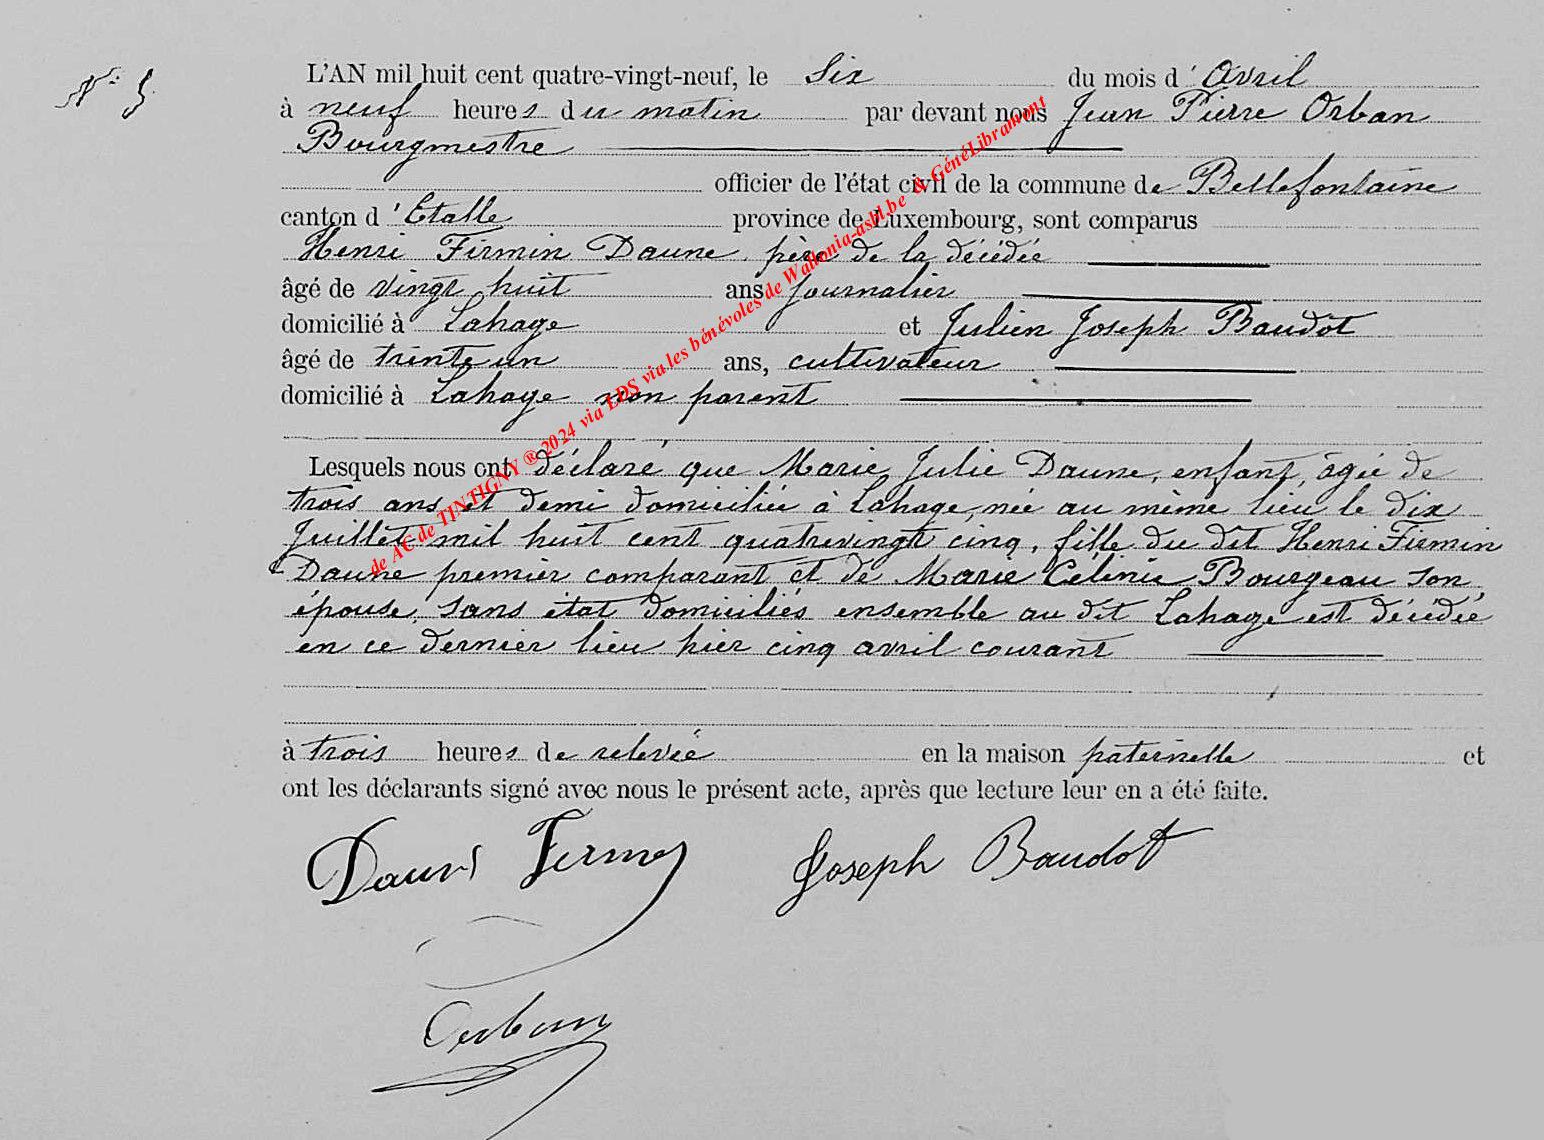 N° 5
L'AN mil huit cent quatre-vingt-neuf, le Six du mois d' Avril
à neuf heures du matin par devant nous Jean Pierre Orban
Bourgmestre
officier de l'état civil de la commune de Bellefontaine
canton d 'Etalle province de Luxembourg, sont comparus
Henri Firmin Daune père de la décédée
âgé de vingt huit ans journalier
domicilié à Lahage et Julien Joseph Baudot
âgé de trente un ans, cultivateur
domicilié à Lahage non parent
Lesquels nous ont déclaré que Marie Julie Daune, enfant, âgée de
trois ans et demi domiciliée à Lahage, née au même lieu le dix
Juillet mil huit cent quatrevingt cinq, fille du dit Henri Firmin
Daune premier comparant et de Marie Célinie Bourgeau son
épouse, sans état domiciliés ensemble au dit Lahage est décédée
en ce dernier lieu hier cinq avril courant
à trois heures de relevée en la maison paternelle et
ont les déclarants signé avec nous le présent acte, après que lecture leur en a été faite.
Joseph Baudot
Orban
de AC de TINTIGNY ® 2024 via LDS via les bénévoles de Wallonia-asbl.be & GénéLibramont